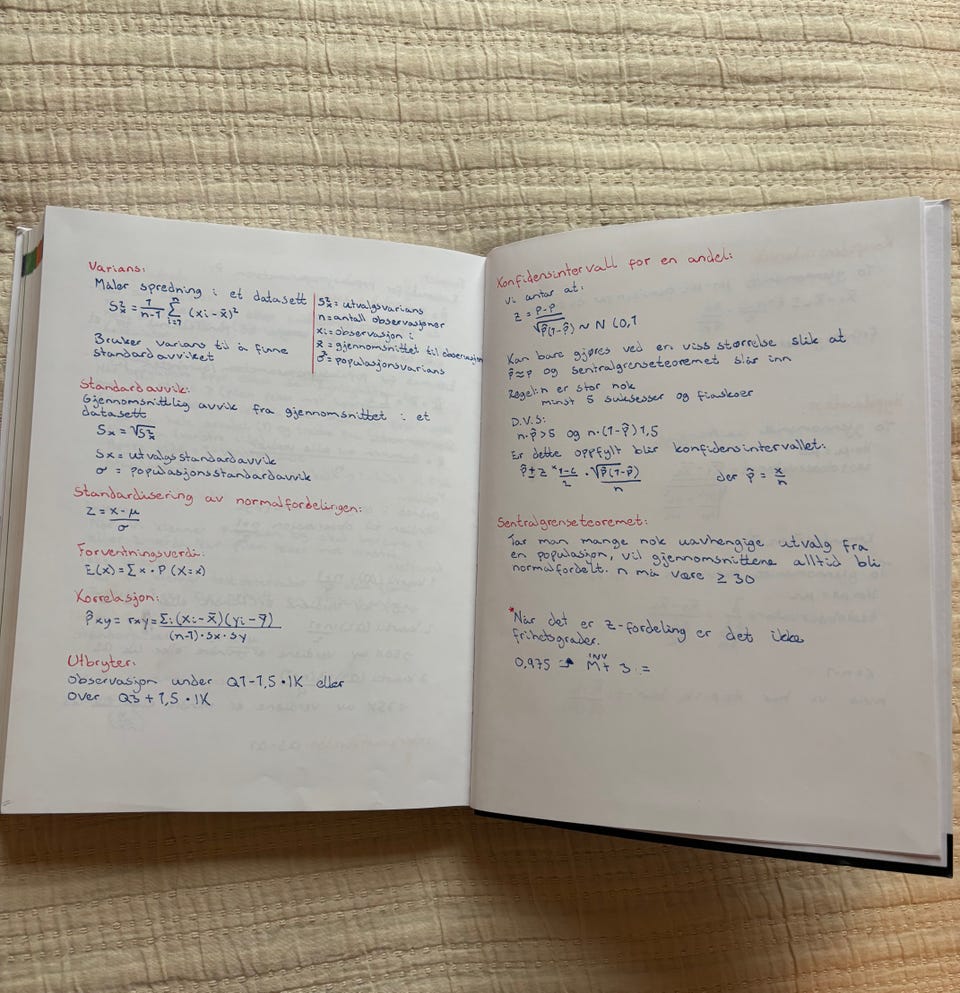 Varians:
Måler spredning i et datasett
S²x = 1/n-1 Σ(n, i=1) (xi - x̄)²
Bruker varians til å finne
standardavviket
S²x = utvalgsvarians
n = antall observasjoner
xi = observasjon i
x̄ = gjennomsnittet til observasjon
σ² = populasjonsvarians
Standardavvik:
Gjennomsnittlig avvik fra gjennomsnittet i et
datasett
Sx = √S²x
Sx = utvalgsstandardavvik
σ = populasjonsstandardavvik
Standardisering av normalfordelingen:
Z = x-μ / σ
Forventningsverdi:
E(x) = Σx · P(X=x)
Korrelasjon:
ρ̂xy = rxy = Σi(xi - x̄)(yi - ȳ) / (n-1)·sx·sy
Utbryter:
observasjon under Q1-1,5·IK eller
over Q3+1,5·IK
Konfidensintervall for en andel:
Vi antar at:
Z = p̂-p / √p̂(1-p̂) ~ N(0,1
Kan bare gjøres ved en viss størrelse slik at
p̂≈p og sentralgrenseteoremet slår inn
Regel: n er stor nok
minst 5 suksesser og fiaskoer
D.V.S:
n·p̂>5 og n·(1-p̂)1,5
Er dette oppfylt blir konfidensintervallet:
p̂ ± z * 1-c/2 · √p̂(1-p̂)/n der p̂ = x/n
Sentralgrenseteoremet:
Tar man mange nok uavhengige utvalg fra
en populasjon, vil gjennomsnittene alltid bli
normalfordelt. n må være ≥ 30
*Når det er z-fordeling er det ikke
frihetsgrader.
INV
0,975 → M+ 3 =